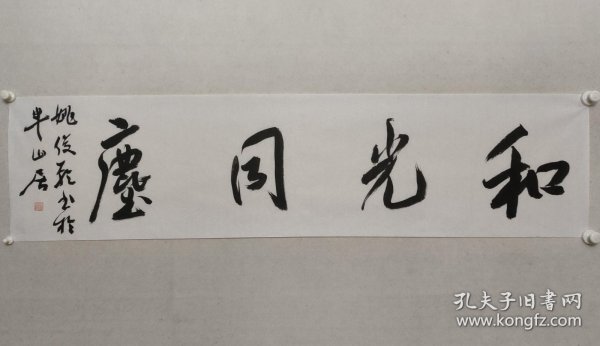 和光同塵
姚俊卿书於
半山居
孔夫子旧书网
www.kongfz.com